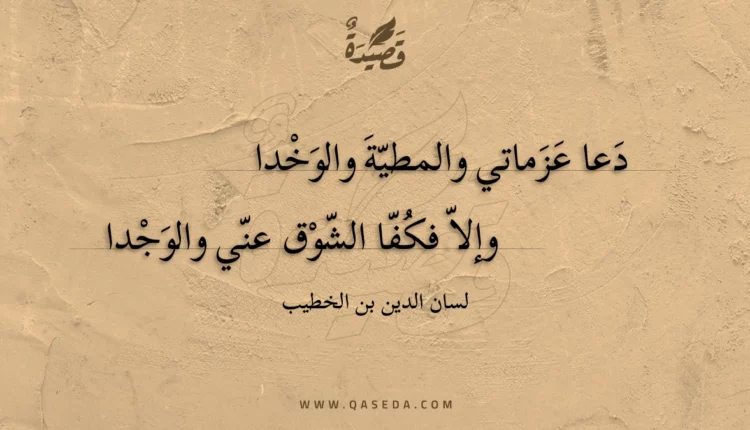 قَصِيدَةٌ
دَعا عَزَماتي والمطيّةَ والوَخْدا
وإلاّ فكُفّا الشّوْق عنّي والوَجْدا
لسان الدين بن الخطيب
WWW.QASEDA.COM